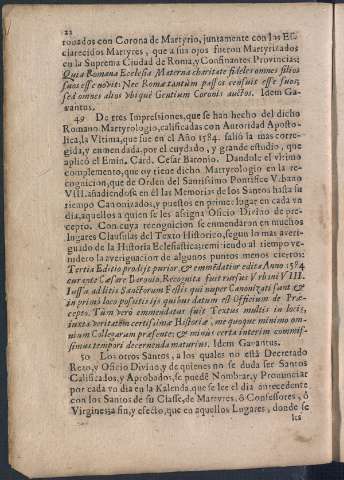 22
ronados con Corona de Martyrio, juntamente con los Es-
clarecidos Martyres, que a sus ojos fueron Martyrizados
en la Suprema Ciudad de Roma, y Confinantes Provincias;
Quia Romana Ecclesia Materna charitate fideles omnes filios
suos esse novit: Nec Romæ tantum passos censuit esse suos,
sed omnes alios vbique Gentium Coronis auctos. Idem Ga-
vantus.
49 De tres Impressiones, que se han hecho del dicho
Romano Martyrologio, calificadas con Autoridad Aposto-
lica, la Vltima, que fue en el Año 1584. salió la mas corre-
gida, y enmendada, por el cuydado, y grande estudio, que
aplicó el Emin. Card. Cesar Baronio. Dandole el vltimo
complemento, que oy tiene dicho Martyrologio en la re-
cognicion, que de Orden del Santissimo Pontifice Vrbano
VIII. añadiendose en él las Memorias de los Santos hasta su
tiempo Canonizados, y puestos en primer lugar en cada vn
dia, aquellos a quien se les assigna Oficio Divino de pre-
cepto. Con cuya recognicion se enmendaron en muchos
lugares Clausulas del Texto Historico, segun lo mas averi-
guado de la Historia Eclesiastica; remitiendo al tiempo ve-
nidero la averiguacion de algunos puntos menos ciertos:
Tertia Editio prodijt purior, & emmēdatior edita Anno 1584
curante Cæsare Baronio, Recognita fuit rursus Vrbani VIII.
Iussa additis Sanctorum Festis qui nuper Canonizati sunt &
in primi loco positis ijs quibus datum est Officium de Præ-
cepto. Tùm verò emmendatur fuit Textus multis in locis,
iuxta veritatem certissimæ Historiæ, me quoque minimo om-
nium Collegarum præsente; & minùs certa interim commis-
simus tempori decernenda maturius. Idem Gavantus.
50 Los otros Santos, a los quales no está Decretado
Rezo, y Oficio Divino, y de quienes no se duda ser Santos
Calificados, y Aprobados, se puedē Nombrar, y Pronunciar
por cada vn dia en la Kalenda, que se lee el dia antecedente
con los Santos de su Classe, de Martyres, ò Confessores, ò
Virgines; a fin, y efecto, que en aquellos Lugares, donde se
les